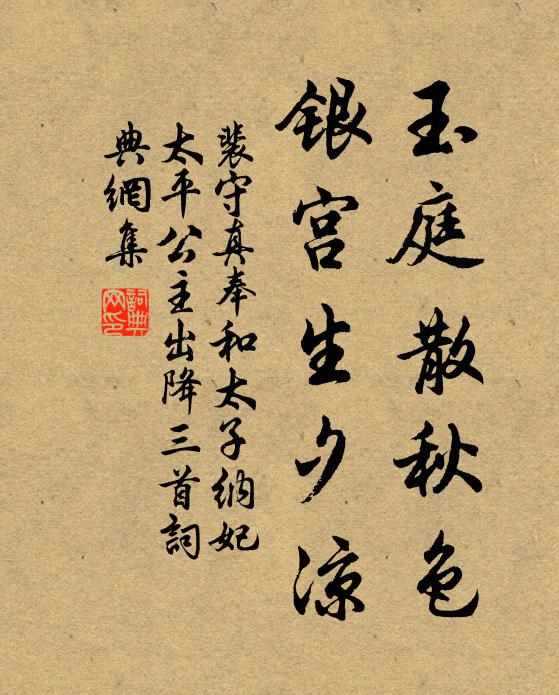 玉庭散秋色
银宫生夕凉
裴守真奉和太子纳妃
太平公主出降三首詞
典網集
詞典网印